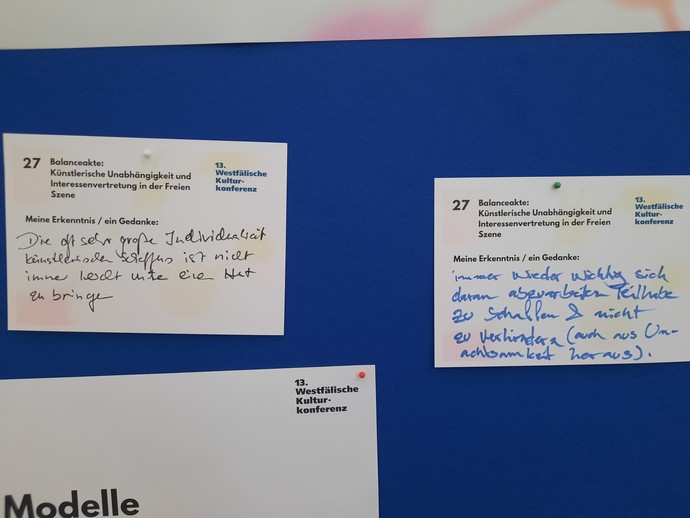 27 Balanceakte:
Künstlerische Unabhängigkeit und
Interessenvertretung in der Freien
Szene
13.
Westfälische
Kultur-
konferenz
Meine Erkenntnis / ein Gedanke:
Die oft sehr große Individualität
künstlerischen Schaffens ist nicht
immer leicht unter einen Hut
zu bringen
27 Balanceakte:
Künstlerische Unabhängigkeit und
Interessenvertretung in der Freien
Szene
13.
Westfälische
Kultur-
konferenz
Meine Erkenntnis / ein Gedanke:
immer wieder wichtig sich
daran abzuarbeiten Teilhabe
zu schaffen & nicht
zu verhindern (auch aus Un-
achtsamkeit heraus).
13.
Westfälische
Kultur-
konferenz
Modelle